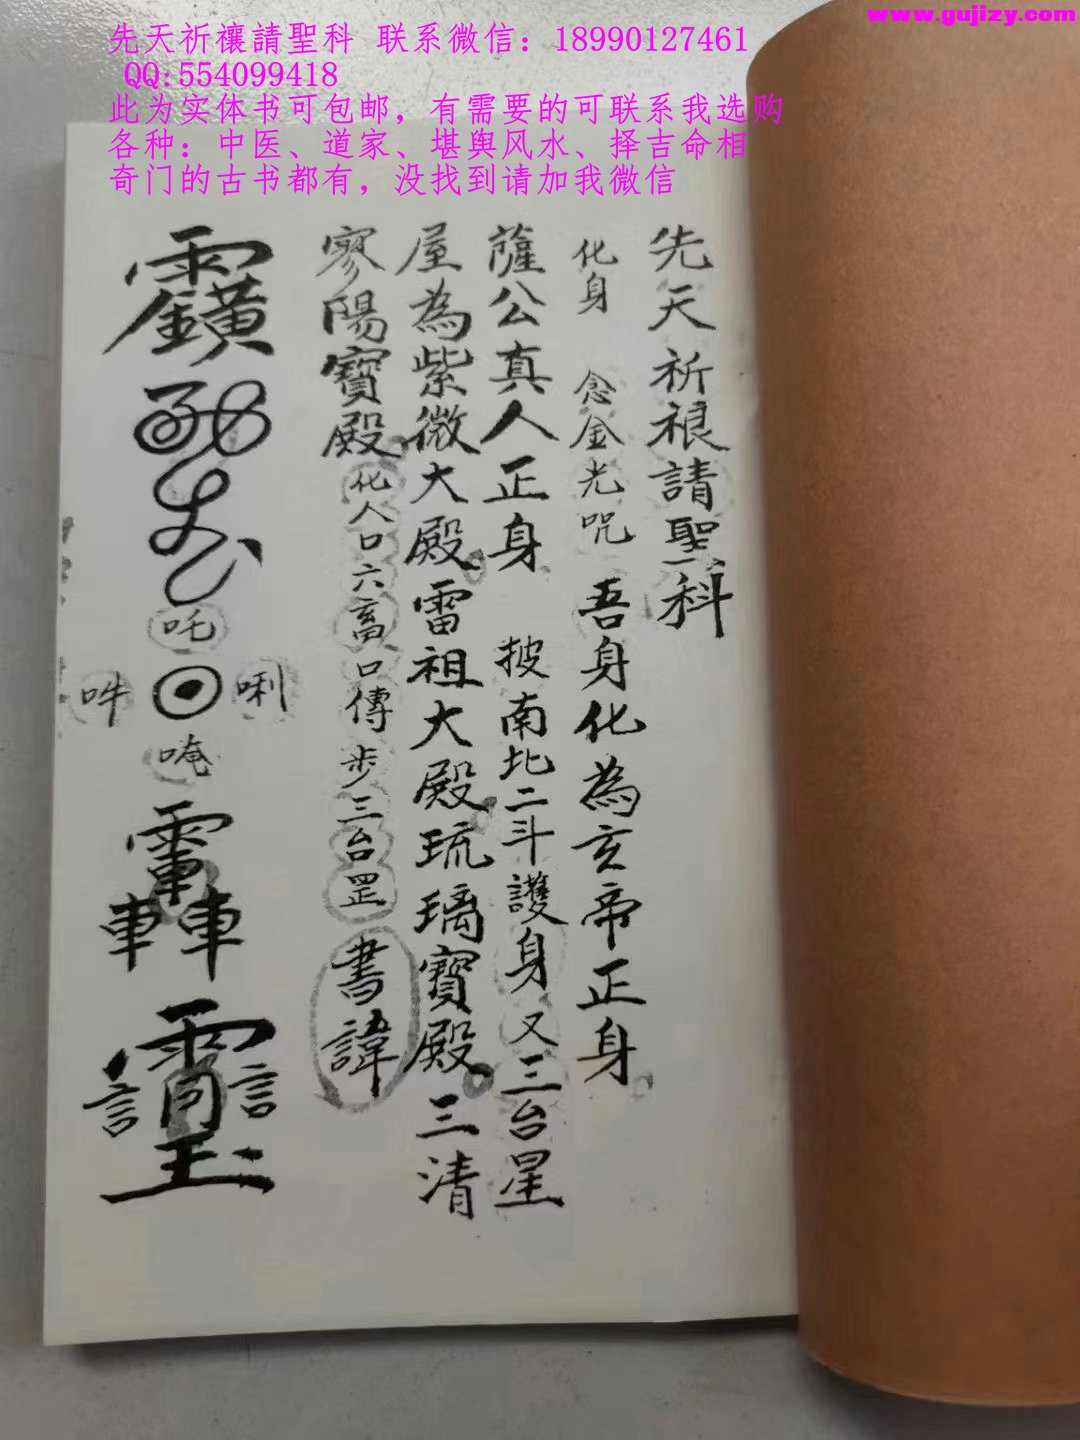 www.gujizy.com
先天祈禳請聖科 联系微信：18990127461
QQ:554099418
此为实体书可包邮，有需要的可联系我选购
各种：中医、道家、堪舆风水、择吉命相
奇门的古书都有，没找到请加我微信
先天祈䄄請聖科
化身 念金光咒 吾身化為玄帝正身。
薩公真人正身 披南北二斗護身又三台星
屋為紫微大殿。雷祖大殿。琉璃寶殿。三清
寥陽寶殿。化人口六畜口傳步三台罡書諱
吒
吽 唎
唵